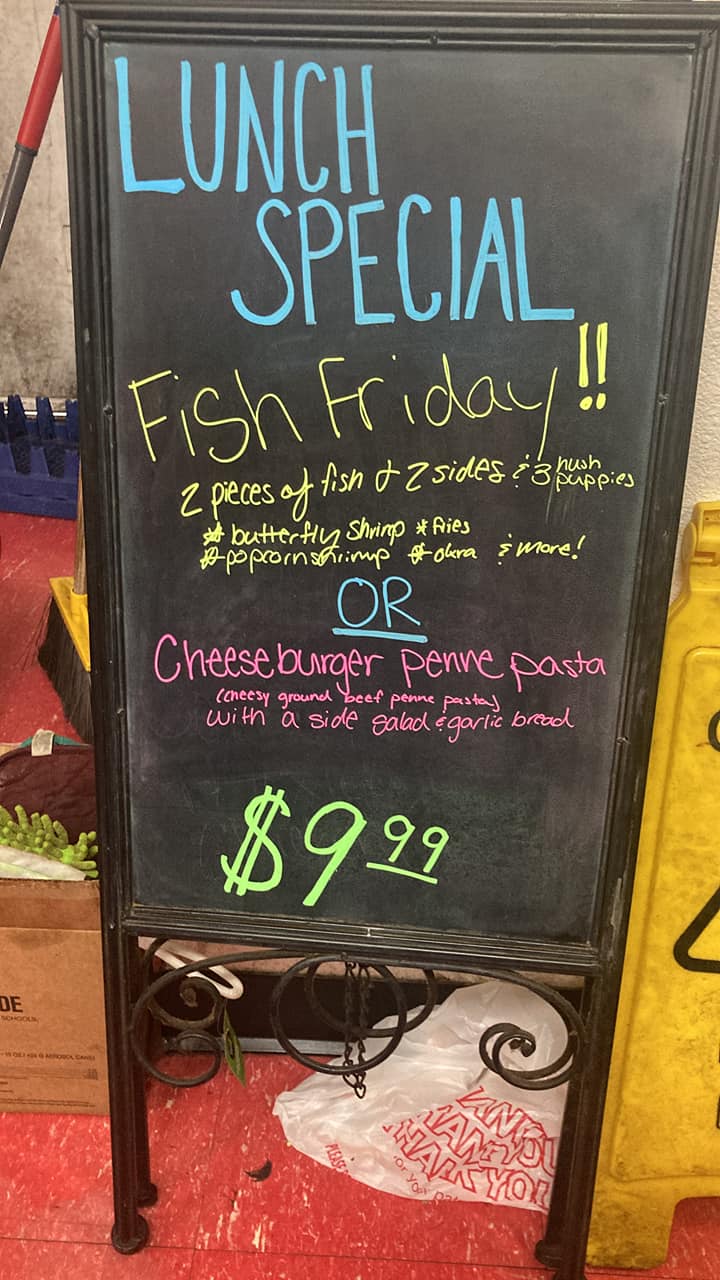 LUNCH
SPECIAL
Fish Friday!!
2 pieces of fish & 2 sides & 3 hush puppies
* butterfly shrimp * fries
* popcorn shrimp * okra & more!
OR
Cheeseburger penne pasta
(cheesy ground beef penne pasta)
with a side salad & garlic bread
$9.99
DE
SCHOOLS.
THANK YOU
THANK YOU
THANK YOU